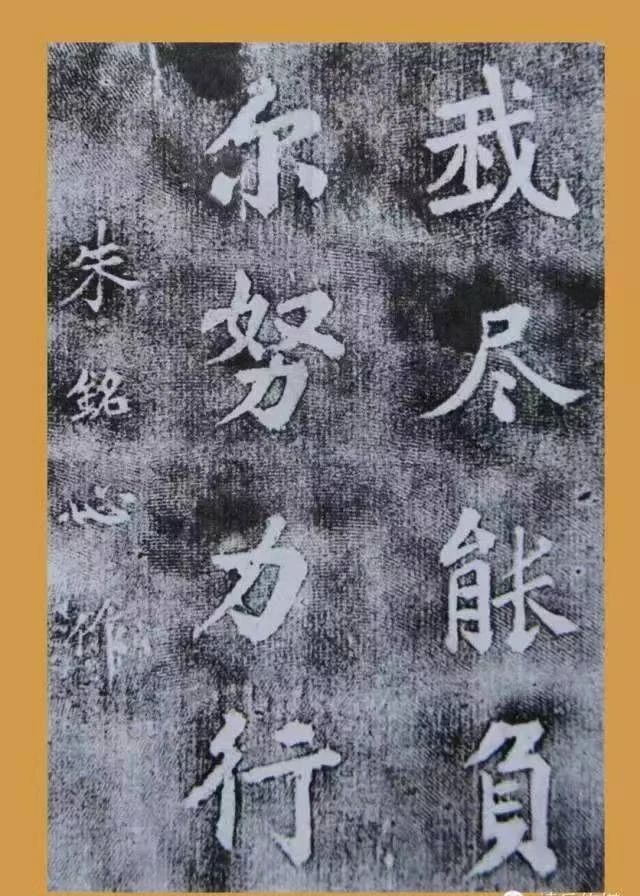 我尽能負
尔努力行
朱銘心作